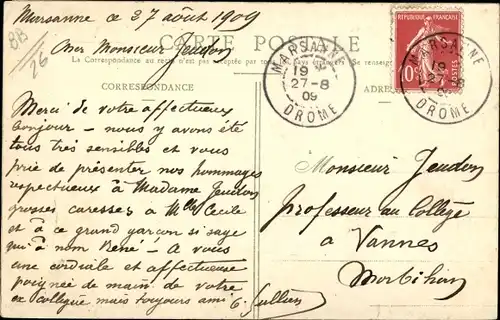 Marsanne ce 27 août 1909
Cher Monsieur Jeudon
CARTE POSTALE
La Correspondance au recto n'est pas
CORRESPONDANCE
Merci de votre affectueux
bonjour - nous y avons été
tous très sensibles et vous
prie de présenter nos hommages
respectueux à Madame Jeudon
grosses caresses à Mlle Cécile
et à ce grand garçon si sage
qui a nom René - A vous
une cordiale et affectueuse
poignée de main de votre
ex collègue mais toujours ami
MARSANNE
19
27-8
09
DROME
REPUBLIQUE FRANÇAISE
10
POSTES
MARSANNE
19
27-8
09
DROME
ADRESSE
Monsieur Jeudon
professeur au Collège
à Vannes
Morbihan